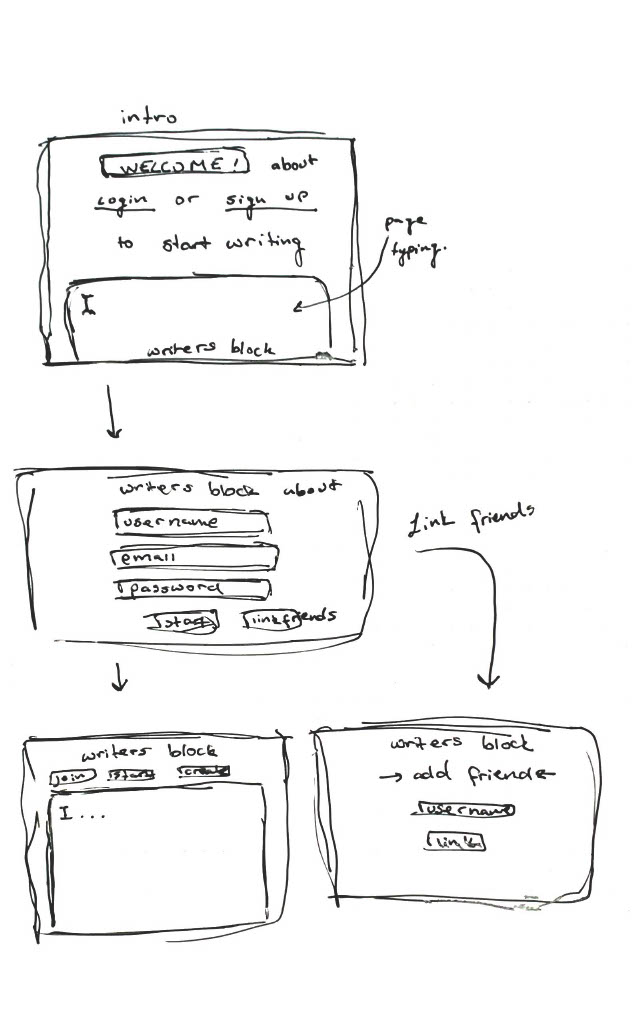 intro
WELCOME! about
Login or sign up
to start writing
page
typing.
I
writers block
writers block about
username
email
password
start linkfriends
Link friends
writers block
join start create
I...
writers block
→ add friends
username
link